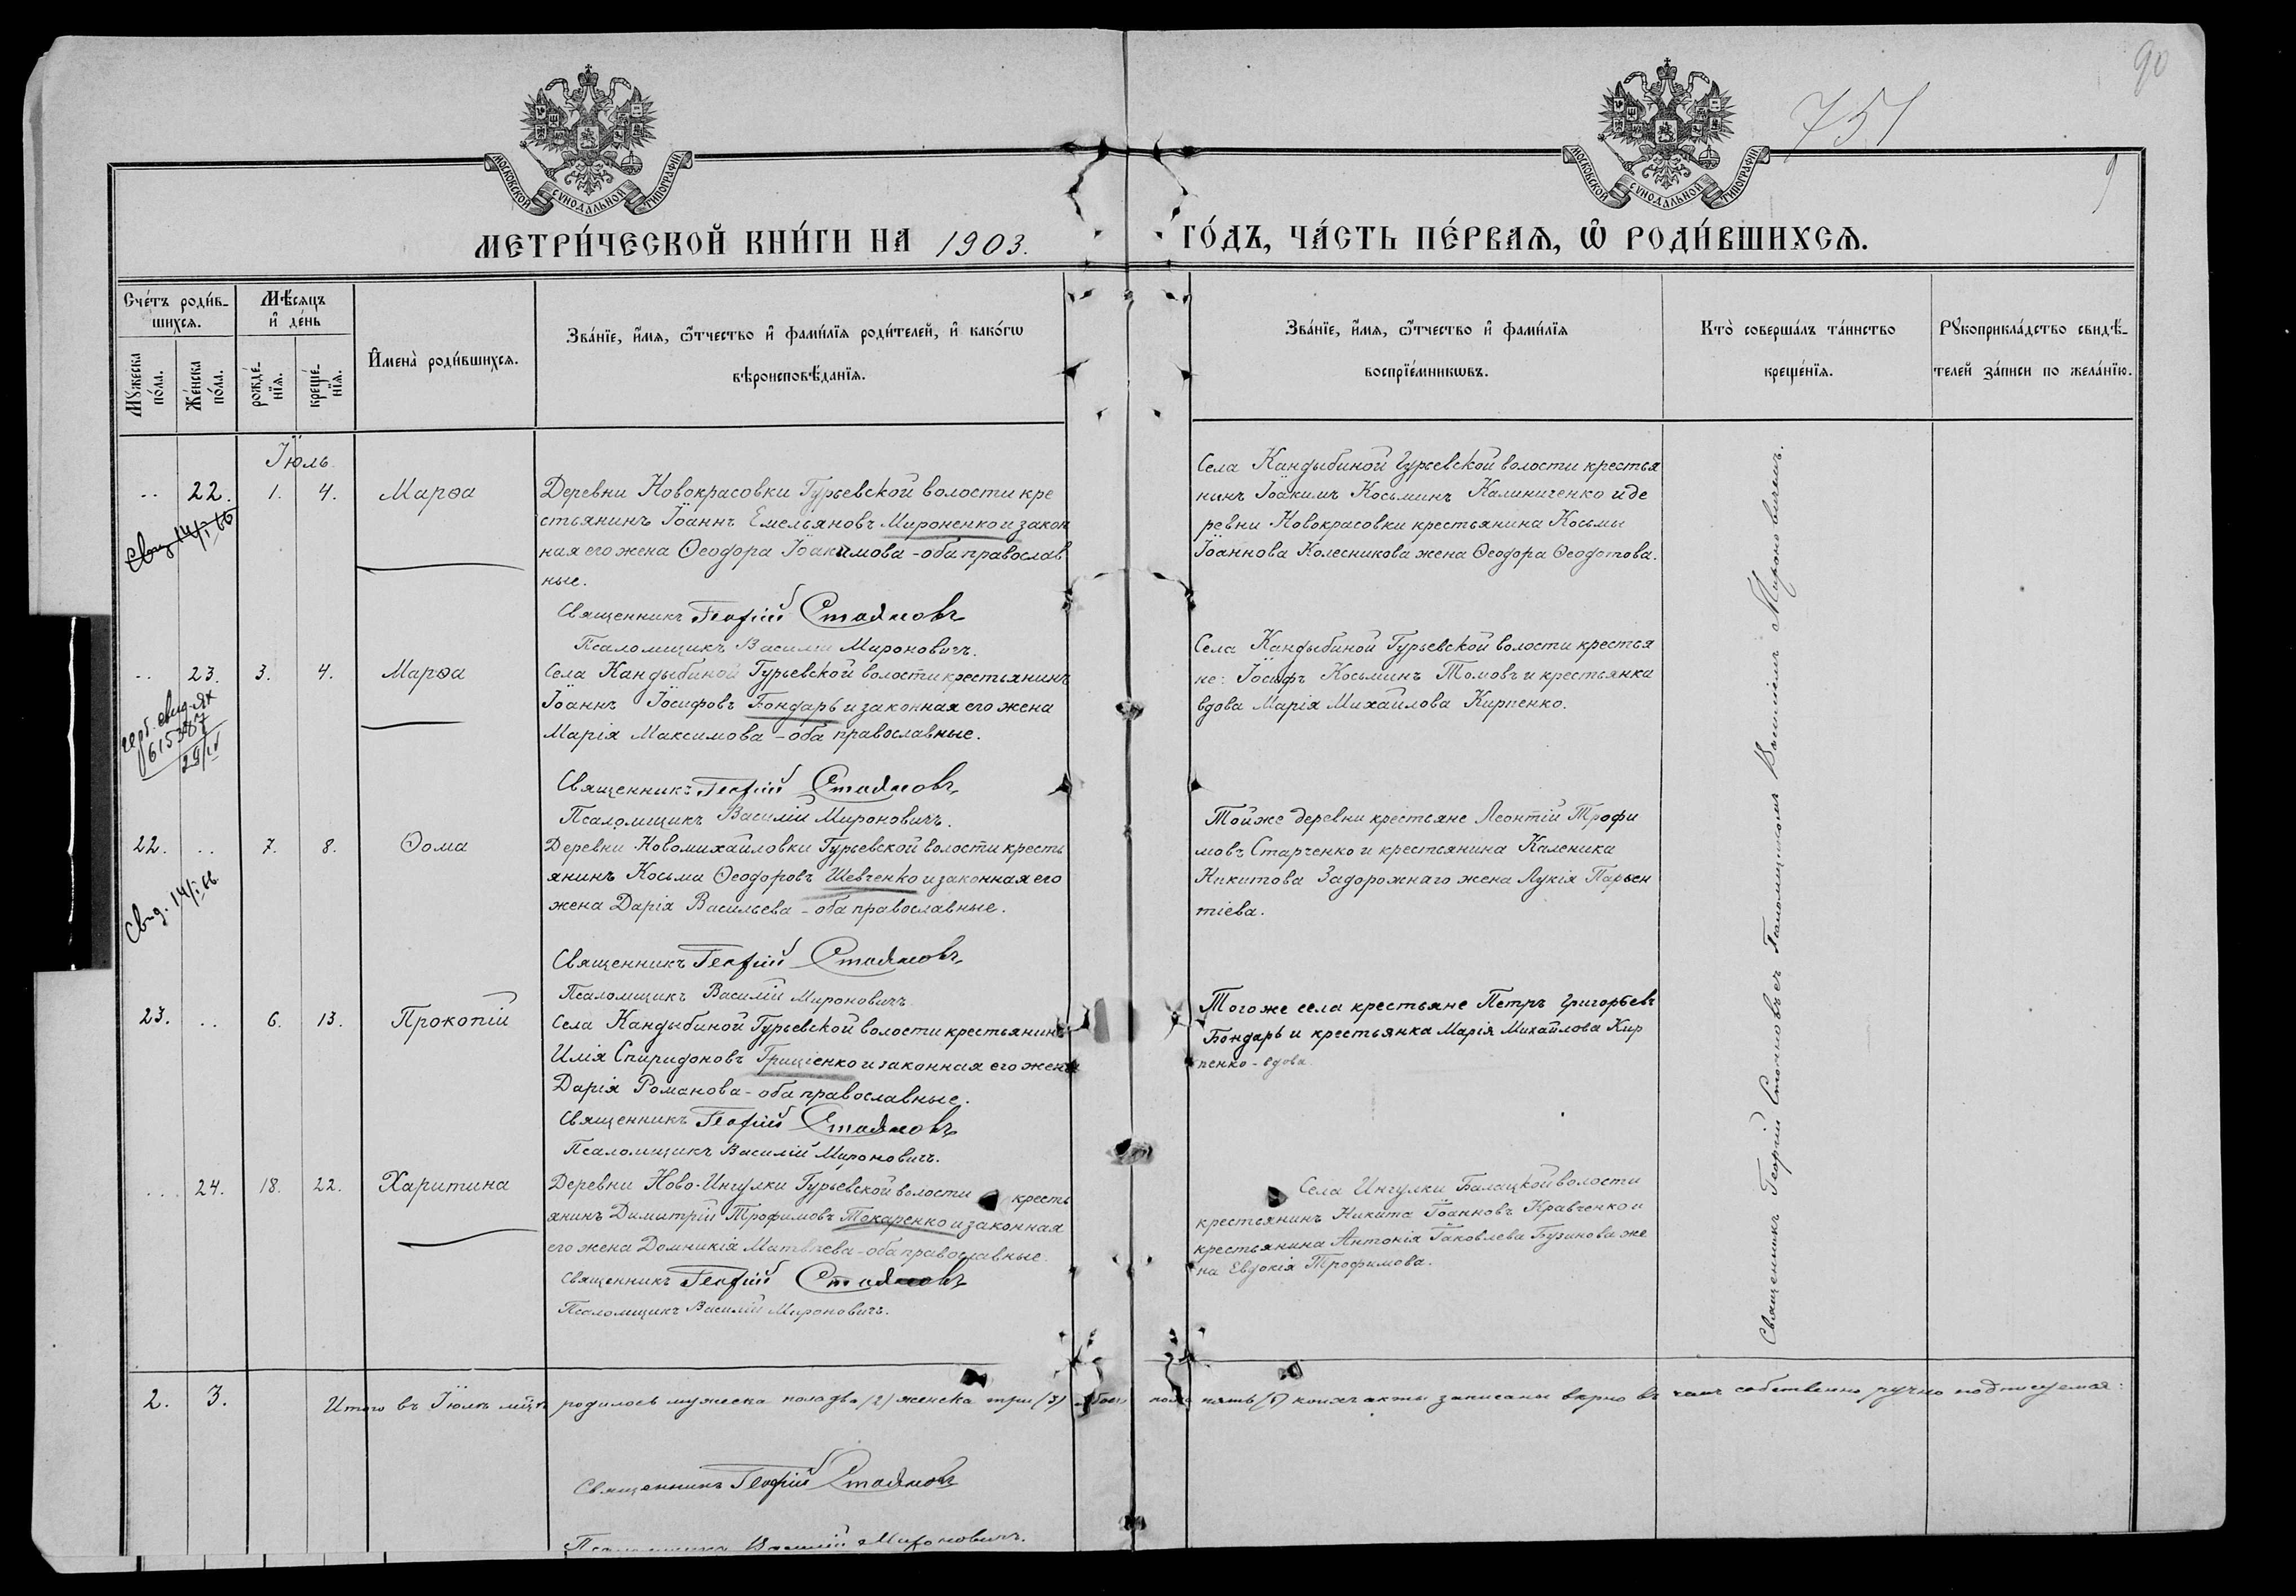 90
751
9
МОСКОВСКОЙ СѴНОДАЛЬНОЙ ТИПОГРАФІИ
МОСКОВСКОЙ СѴНОДАЛЬНОЙ ТИПОГРАФІИ
МЕТРИ́ЧЕСКОЙ КНИ́ГИ НА 1903. ГО́ДЪ, ЧА́СТЬ ПЕ́РВАѦ, Ѡ҃ РОДИ́ВШИХСѦ.
Сче́тъ роди́в-
шихсѧ.
Мꙋ́жеска по́ла.
Же́нска по́ла.
Мѣ́сѧцъ
и҆ де́нь
рожде́-
нїѧ.
креще́-
нїѧ.
И҆мена̀ роди́вшихсѧ.
Зва́нїе, и҆́мѧ, ѻ҆́тчество и҆ фами́лїѧ роди́телей, и҆ како́гѡ
вѣроисповѣ́данїѧ.
Зва́нїе, и҆́мѧ, ѻ҆́тчество и҆ фами́лїѧ
воспрїе́мникѡвъ.
Кто̀ соверша́лъ та́инство
креще́нїѧ.
Рꙋкоприкла́дство свидѣ́-
телей за́писи по жела́нїю.
Іюль
.. 22. 1. 4. Марѳа
Свид 14/I 66
Деревни Новокрасовки Гурьевской волости кре
стьянинъ Іоаннъ Емельяновъ Мироненко и закон
ная его жена Ѳеодора Іоакимова - оба православ
ные.
Священникъ Георгій Стояновъ
Псаломщикъ Василій Мироновичъ.
Села Кандыбиной Гурьевской волости крестья
нинъ Іоакимъ Косьминъ Калиниченко и де
ревни Новокрасовки крестьянина Косьмы
Іоаннова Колесникова жена Ѳеодора Ѳеодотова.
.. 23. 3. 4. Марѳа
615387
29/IV
Села Кандыбиной Гурьевской волости крестьянинъ
Іоаннъ Іосифовъ Бондарь и законная его жена
Марія Максимова - оба православные.
Священникъ Георгій Стояновъ
Псаломщикъ Василій Мироновичъ.
Села Кандыбиной Гурьевской волости крестья
не: Іосифъ Косьминъ Томовъ и крестьянка
вдова Марія Михайлова Кирпенко.
22. .. 7. 8. Ѳома
Свид. 14/I 66
Деревни Новомихайловки Гурьевской волости кресть
янинъ Косьма Ѳеодоровъ Шевченко и законная его
жена Дарія Васильева - оба православные.
Священникъ Георгій Стояновъ
Псаломщикъ Василій Мироновичъ
Той же деревни крестьяне Леонтій Трофи
мовъ Старченко и крестьянина Каленика
Никитова Задорожнаго жена Лукія Парѳен
тіева.
23. .. 6. 13. Прокопій
Села Кандыбиной Гурьевской волости крестьянинъ
Илія Спиридоновъ Гриціенко и законная его жена
Дарія Романова - оба православные.
Священникъ Георгій Стояновъ
Псаломщикъ Василій Мироновичъ.
Того же села крестьяне Петръ Григорьевъ
Бондарь и крестьянка Марія Михайлова Кир
пенко - вдова.
... 24. 18. 22. Харитина
Деревни Ново-Ингулки Гурьевской волости кресть
янинъ Димитрій Трофимовъ Токаренко и законная
его жена Домникія Матвѣева - оба православные.
Священникъ Георгій Стояновъ
Псаломщикъ Василій Мироновичъ.
Села Ингулки Балацкой волости
крестьянинъ Никита Іоанновъ Кравченко и
крестьянина Антонія Іаковлева Бузинова же
на Евдокія Трофимова.
Священникъ Георгій Стояновъ съ Псаломщикомъ Василіемъ Мироновичемъ.
2. 3. Итого въ Іюлѣ мцѣ родилось мужеска пола два (2) женска три (3) обоего пола пять (5) коихъ акты записаны вѣрно въ чемъ собственно ручно подписуемся:
Священникъ Георгій Стояновъ
Псаломщикъ Василій Мироновичъ.